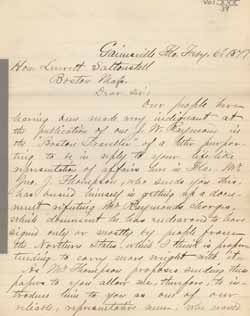 Gainesville Fla. Feby. 6th 1877
Hon Leverett Saltonstall
Boston Mass.
Dear Sir:
Our people here
having been made very indignant at
the publication of one J. W. Raymond in
the "Boston Traveller" of a letter purpor-
ting to be in reply to your life-like
representation of affairs here in Fla. Mr.
Geo. J. Thompson who sends you this
has busied himself in getting up a docu-
ment refuting Mr Raymonds charges,
which document he has endeavored to have
signed only or mostly by people from
the Northern States, which I think is proper
tending to carry more weight with it.
As Mr Thompson proposes sending these
papers to you allow me, therefore, to in-
troduce him to you as one of our
reliable, representative men, who wants